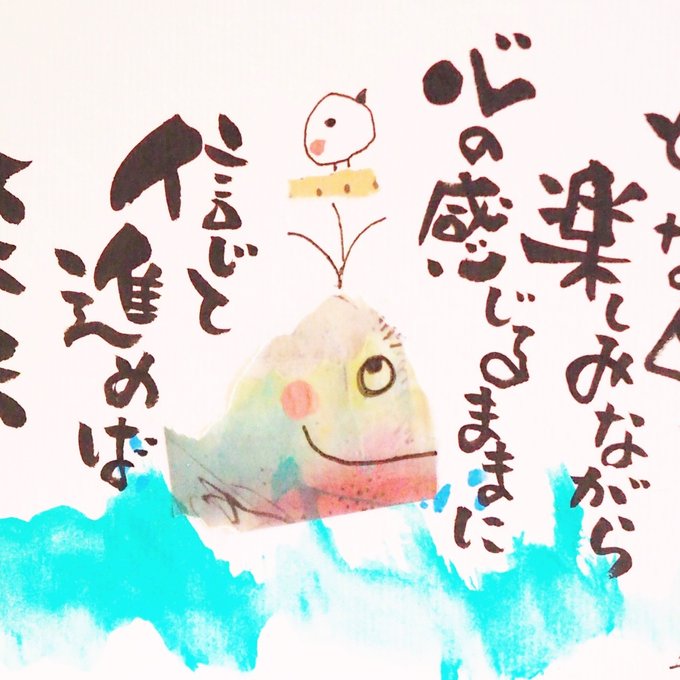 楽しみながら
心の感じるままに
信じて
進めば